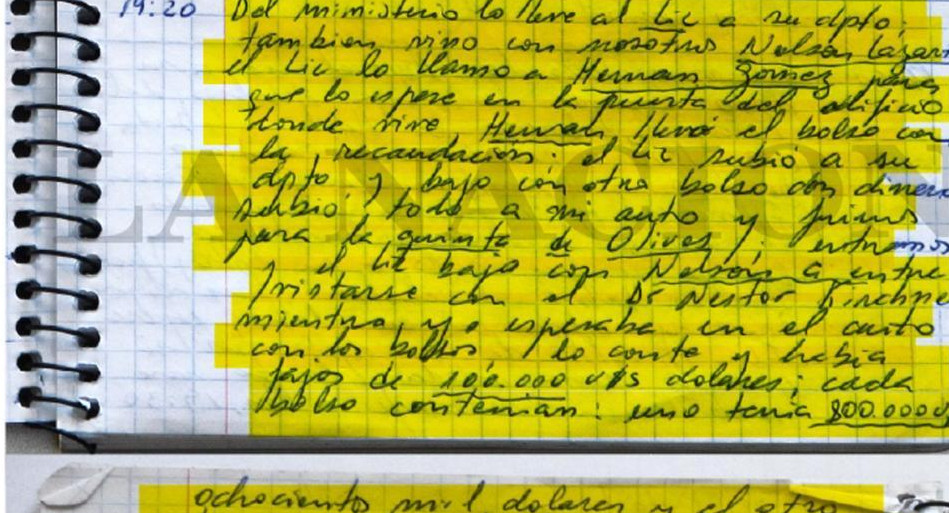 19:20 Del ministerio lo lleve al Lic a su dpto;
tambien vino con nosotros Nelson Lazar
el Lic lo llamo a Hernan Gomez para
que lo espere en la puerta del edificio
donde vive Hernan llevó el bolso con
la recaudación. el Lic subió a su
dpto y bajo con otro bolso con dinero
subió todo a mi auto y fuimos
para la quinta de Olivos; entramos
y el Lic bajo con Nelson a entre
/vistarse con el Dr Nestor Kirchne
mientras yo esperaba en el auto
con los bolsos, lo conte y habia
fajos de 100.000 U$s dolares; cada
bolso contenian: uno tenia 800.000
ochocientos mil dolares y el otro
LA NACION